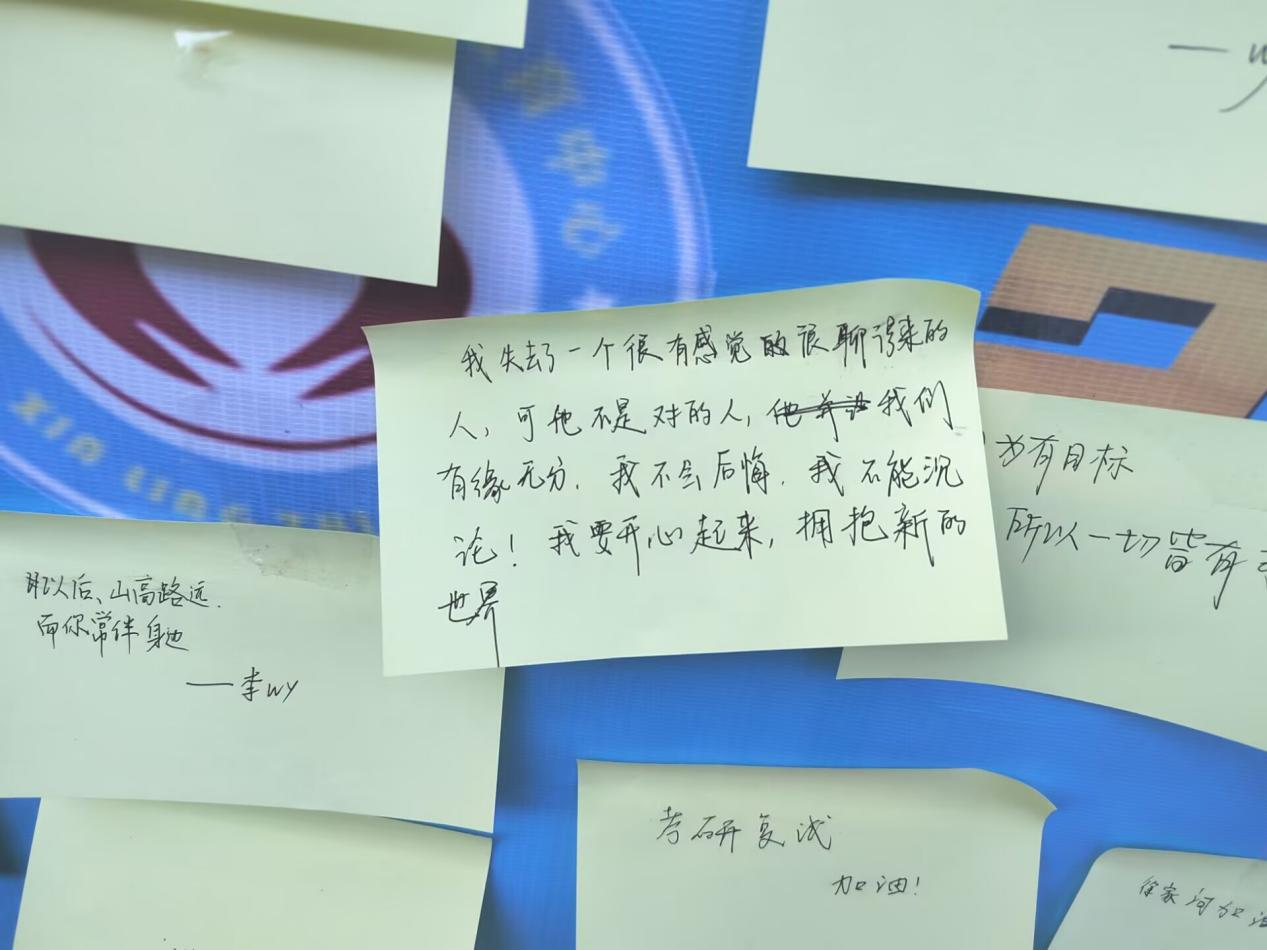 我失去了一个很有感觉的很聊得来的
人，可他不是对的人，他并没我们
有缘无分．我不会后悔．我不能沉
论！我要开心起来，拥抱新的
世界
也有目标
所以一切皆有
所以后、山高路远．
而你常伴身边
——李wy
考研复试
加油！
徐家河加油
XIN LING